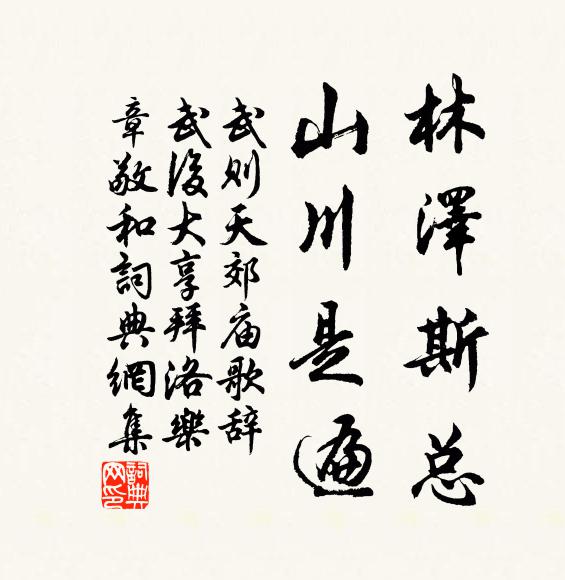 林澤斯总
山川是遍
武则天郊庙歌辞
武後大享拜洛樂
章敬和詞典網集
詞典网印